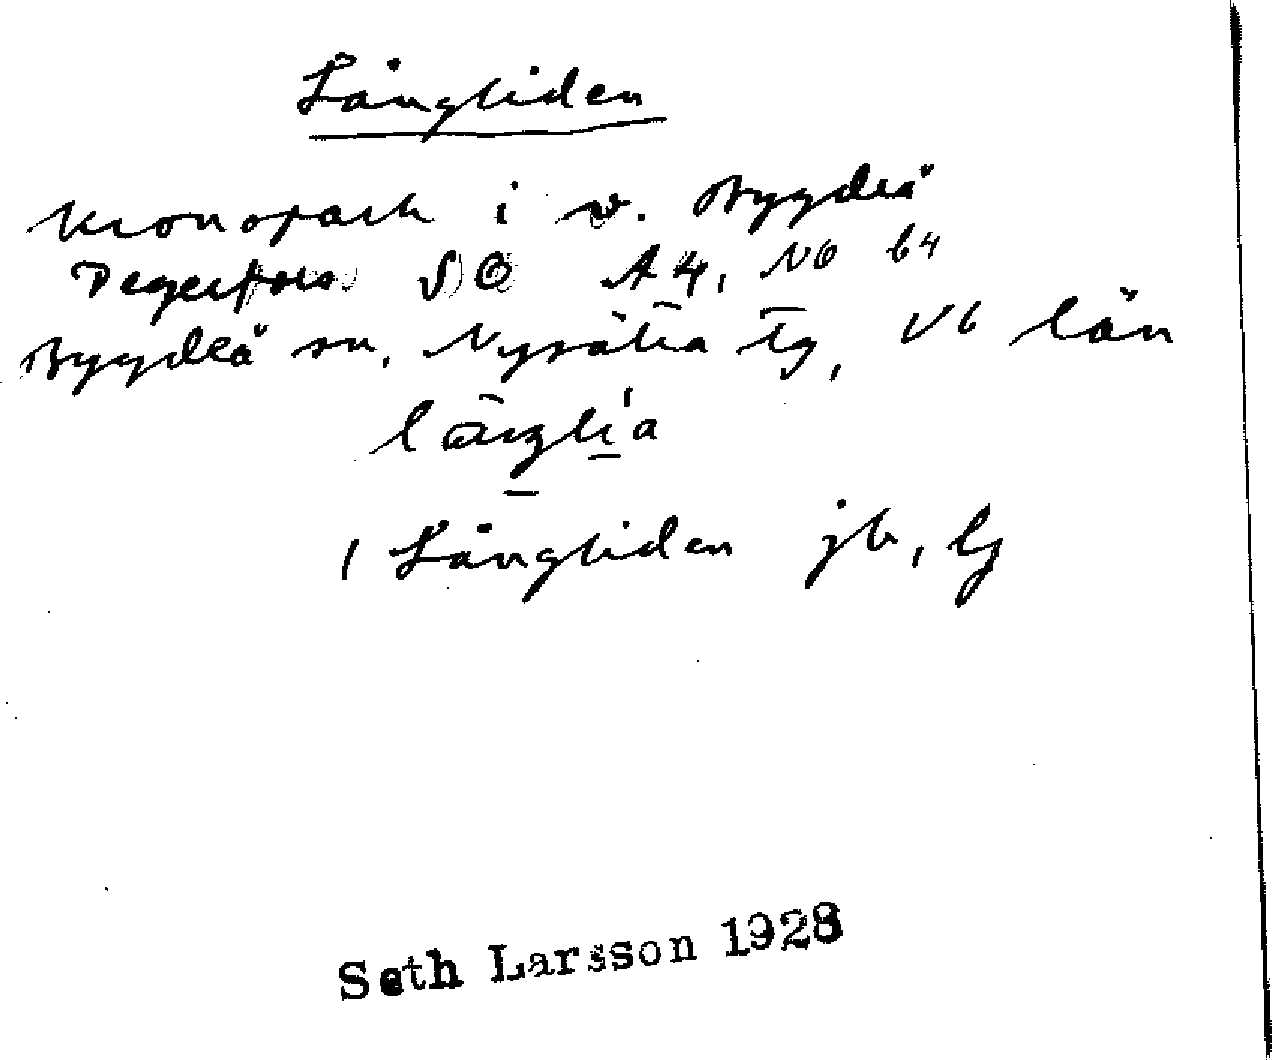 Långliden
Kronopark i v. Bygdeå
Degerfors SO A4, NO b4
Bygdeå sn, Nysätra tg, Vb län
långlia
1 Långliden jb, Gj
Seth Larsson 1928